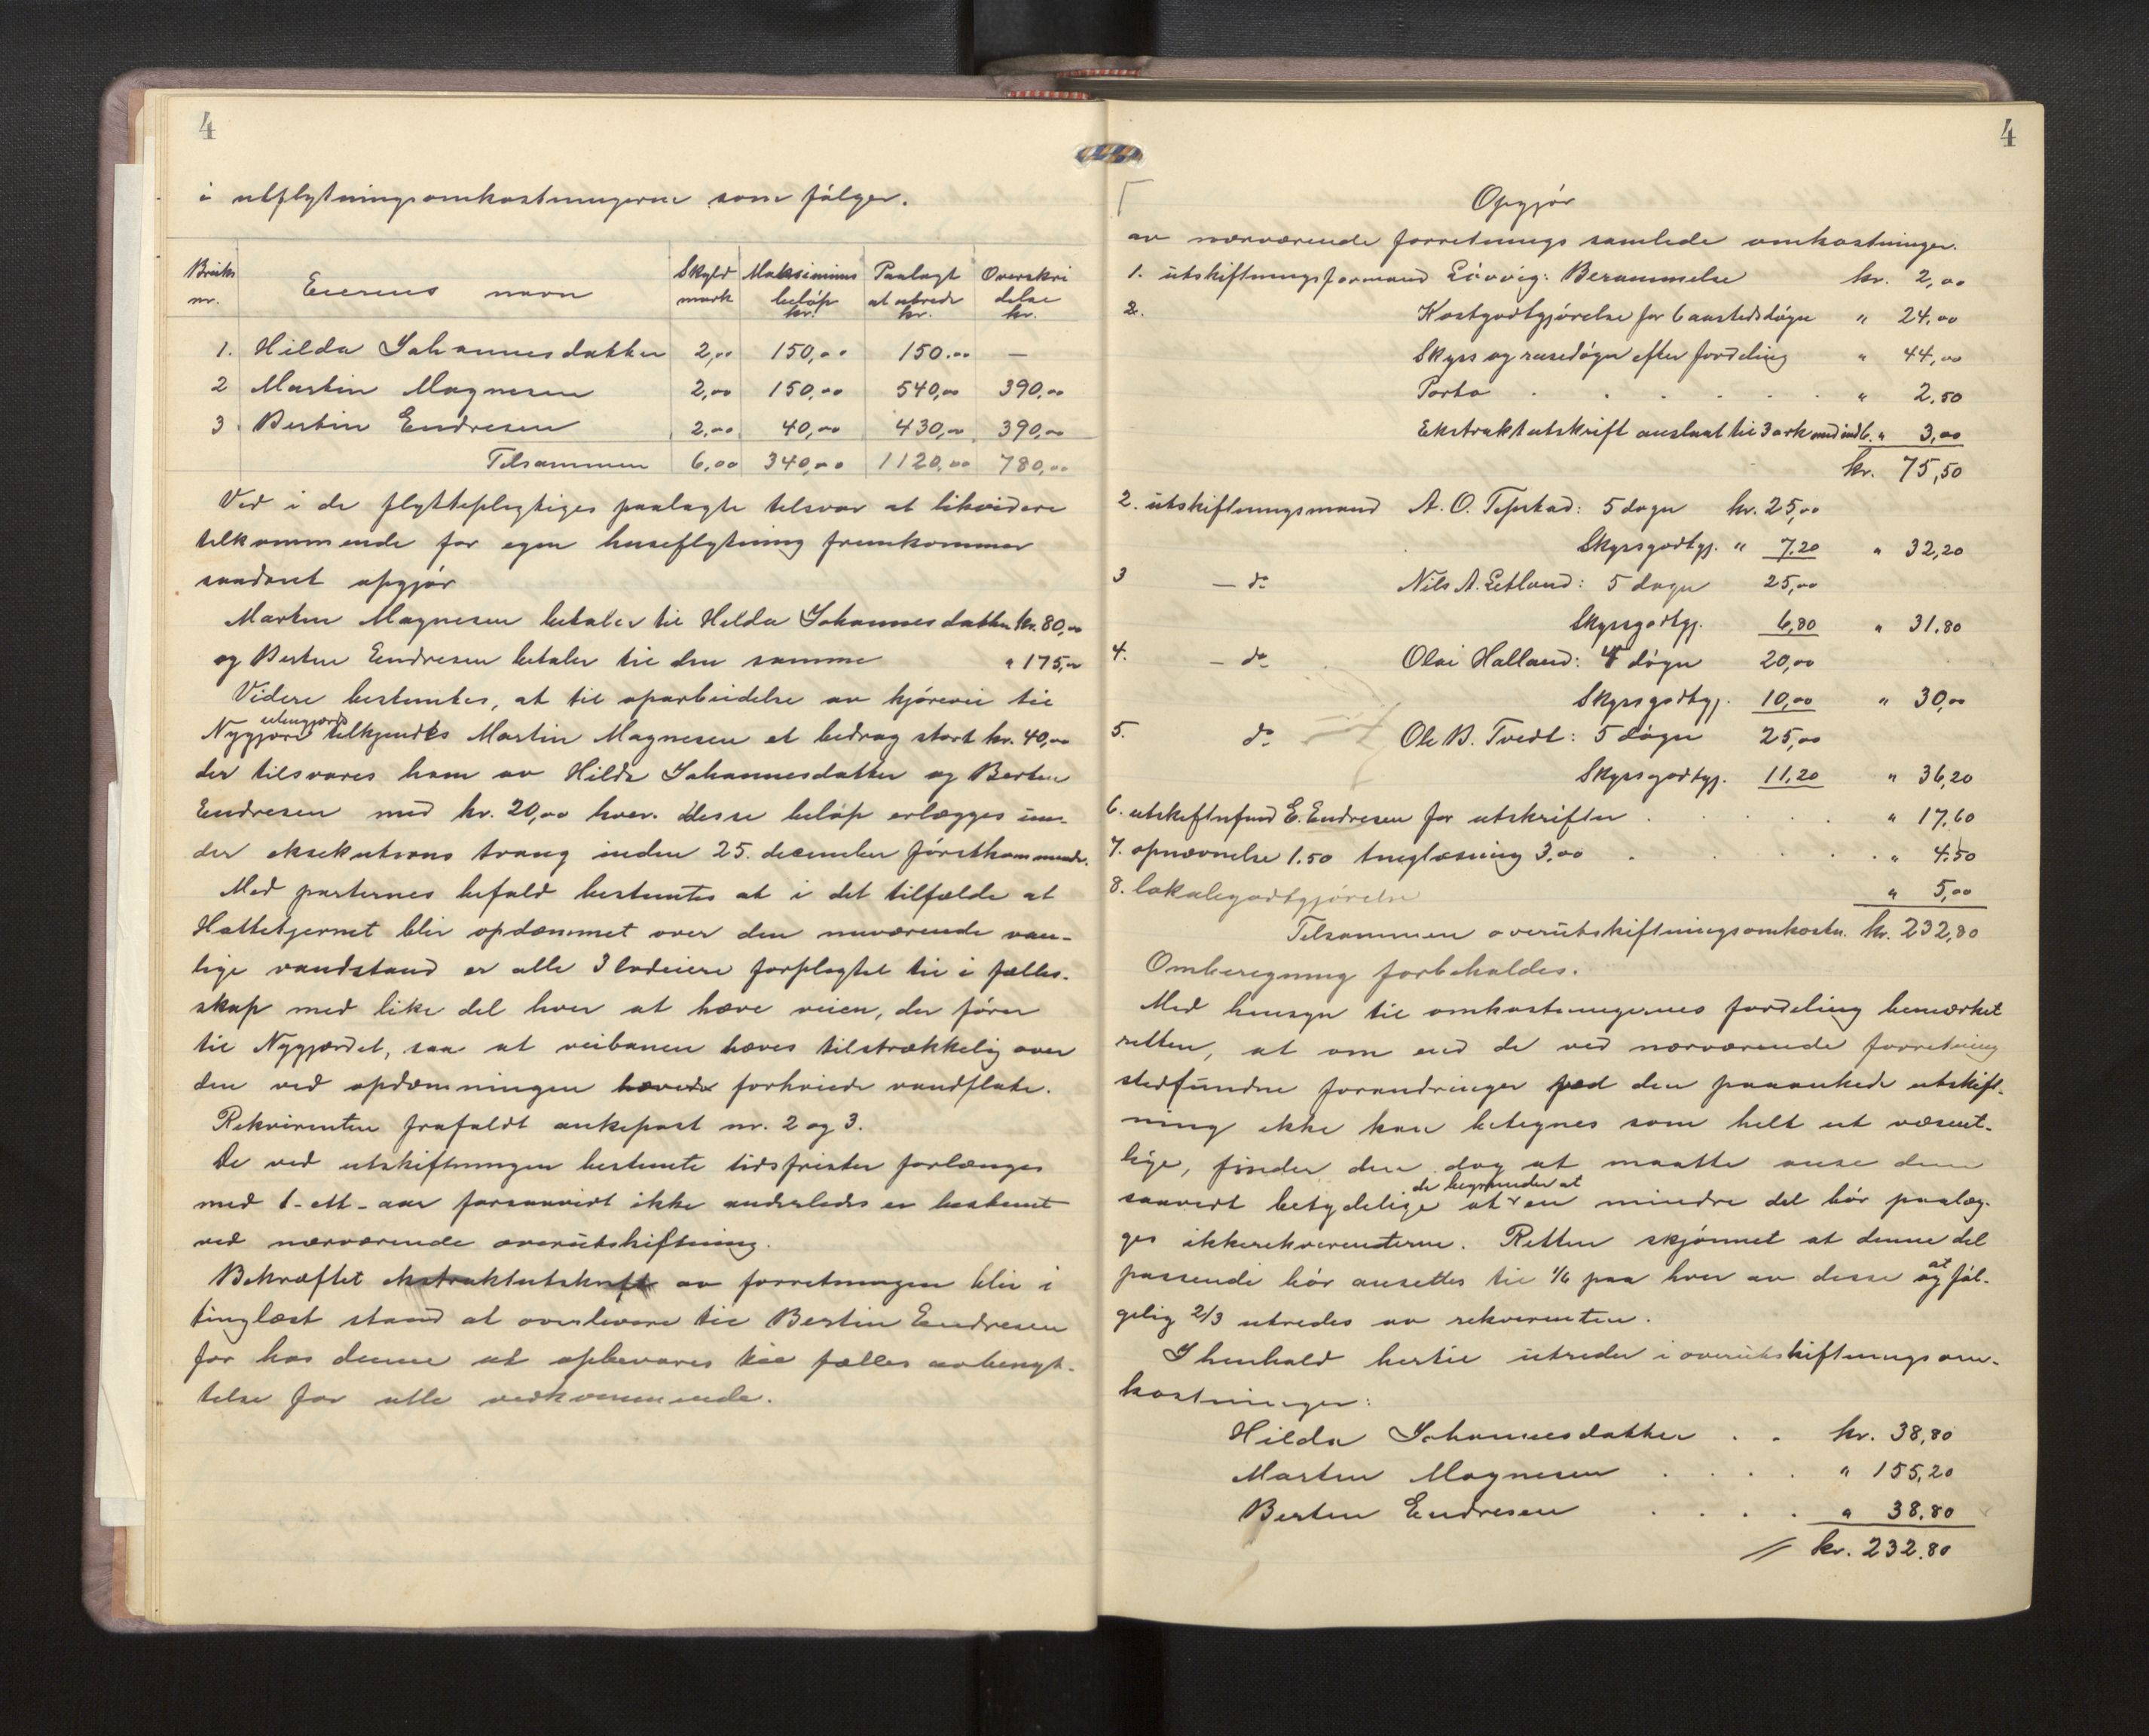 4
i utflytningsomkostningerne som følger.
Bruks nr. Eierens navn Skyld mark Maksimums beløp kr. Paalagt at utrede kr. Overskridelse kr.
1. Hilda Johannesdatter 2,00 150,00 150.00 —
2 Martin Magnesen 2,00 150,00 540,00 390,00
3 Bertin Endresen 2,00 40,00 430,00 390,00
Tilsammen 6,00 340,00 1120,00 780,00
Ved i de flyttepligtiges paalagte tilsvar at likvidere
tilkommende for egen huseflytning fremkommer
saadant opgjør
Martin Magnesen betaler til Hilda Johannesdatter kr. 80,00
og Bertin Endresen betaler til den samme " 175,00
Videre bestemtes, at til oparbeidelse av kjørevei til
Nygjære utengjærds tilkjendes Martin Magnesen et bedrag stort kr. 40,00
der tilsvares ham av Hilda Johannesdatter og Bertin
Endresen med kr. 20,00 hver. Disse beløp erlægges un-
der eksekutions tvang inden 25. december førstkommende.
Med parternes bifald bestemtes at i det tilfælde at
Hattetjernet blir opdæmmet over den nuværende van-
lige vandstand er alle 3 lodeiere forpligtet til i fælles-
skap med like del hver at hæve veien, der fører
til Nygjærdet, saa at veibanen hæves tilstrækkelig over
den ved opdæmningen hævede forhøiede vandflate.
Rekvirenten frafaldt ankepost nr. 2 og 3.
De ved utskiftningen bestemte tidsfrister forlænges
med 1 - ett - aar forsaavidt ikke anderledes er bestemt
ved nærværende overutskiftning.
Bekræftet ekstraktutskrift av forretningen blir i
tinglæst stand at overlevere til Bertin Endresen
for hos denne at opbevares til fælles avbenyt-
telse for alle vedkommende.
4
Opgjør
av nærværende forretnings samlede omkostninger.
1. utskiftningsformand Løvvig: Berammelse kr. 2,00
2. Kostgodtgjørelse for 6 aastedsdøgn " 24,00
Skyss og reisedøgn efter fordeling " 44,00
Porto " 2.50
Ekstraktutskrift anslaat til 3 ark med indb. " 3,00
kr. 75,50
2. utskiftningsmand A. O. Tepstad: 5 døgn kr. 25,00
Skyssgodtgj. " 7,20 " 32,20
3 — do Nils A. Letland: 5 døgn 25,00
Skyssgodtgj. 6,80 " 31.80
4. — do Olai Halland: 4 døgn 20,00
Skyssgodtgj. 10,00 " 30,00
5. do Ole B. Tvedt: 5 døgn 25,00
Skyssgodtgj. 11,20 " 36,20
6. utskiftnfmd E. Endresen for utskrifter " 17,60
7. opnævnelse 1.50 tinglæsning 3,00 " 4.50
8. lokalegodtgjørelse " 5,00
Tilsammen overutskiftningsomkostn. kr. 232,80
Omberegning forbeholdes.
Med hensyn til omkostningernes fordeling bemærket
retten, at om end de ved nærværende forretning
stedfundne forandringer ved den paaankede utskift-
ning ikke kan betegnes som helt ut væsent-
lige, finder den dog at maatte anse dem
saavidt betydelige at de begrunder at en mindre del bør paalæg-
ges ikkerekvirenterne. Retten skjønnet at denne del
passende bør ansettes til 1/6 paa hver av disse og at føl-
gelig 2/3 utredes av rekvirenten.
I henhold hertil utreder i overutskiftningsom-
kostninger:
Hilda Johannesdatter kr. 38,80
Martin Magnesen " 155,20
Bertin Endresen " 38,80
kr. 232.80